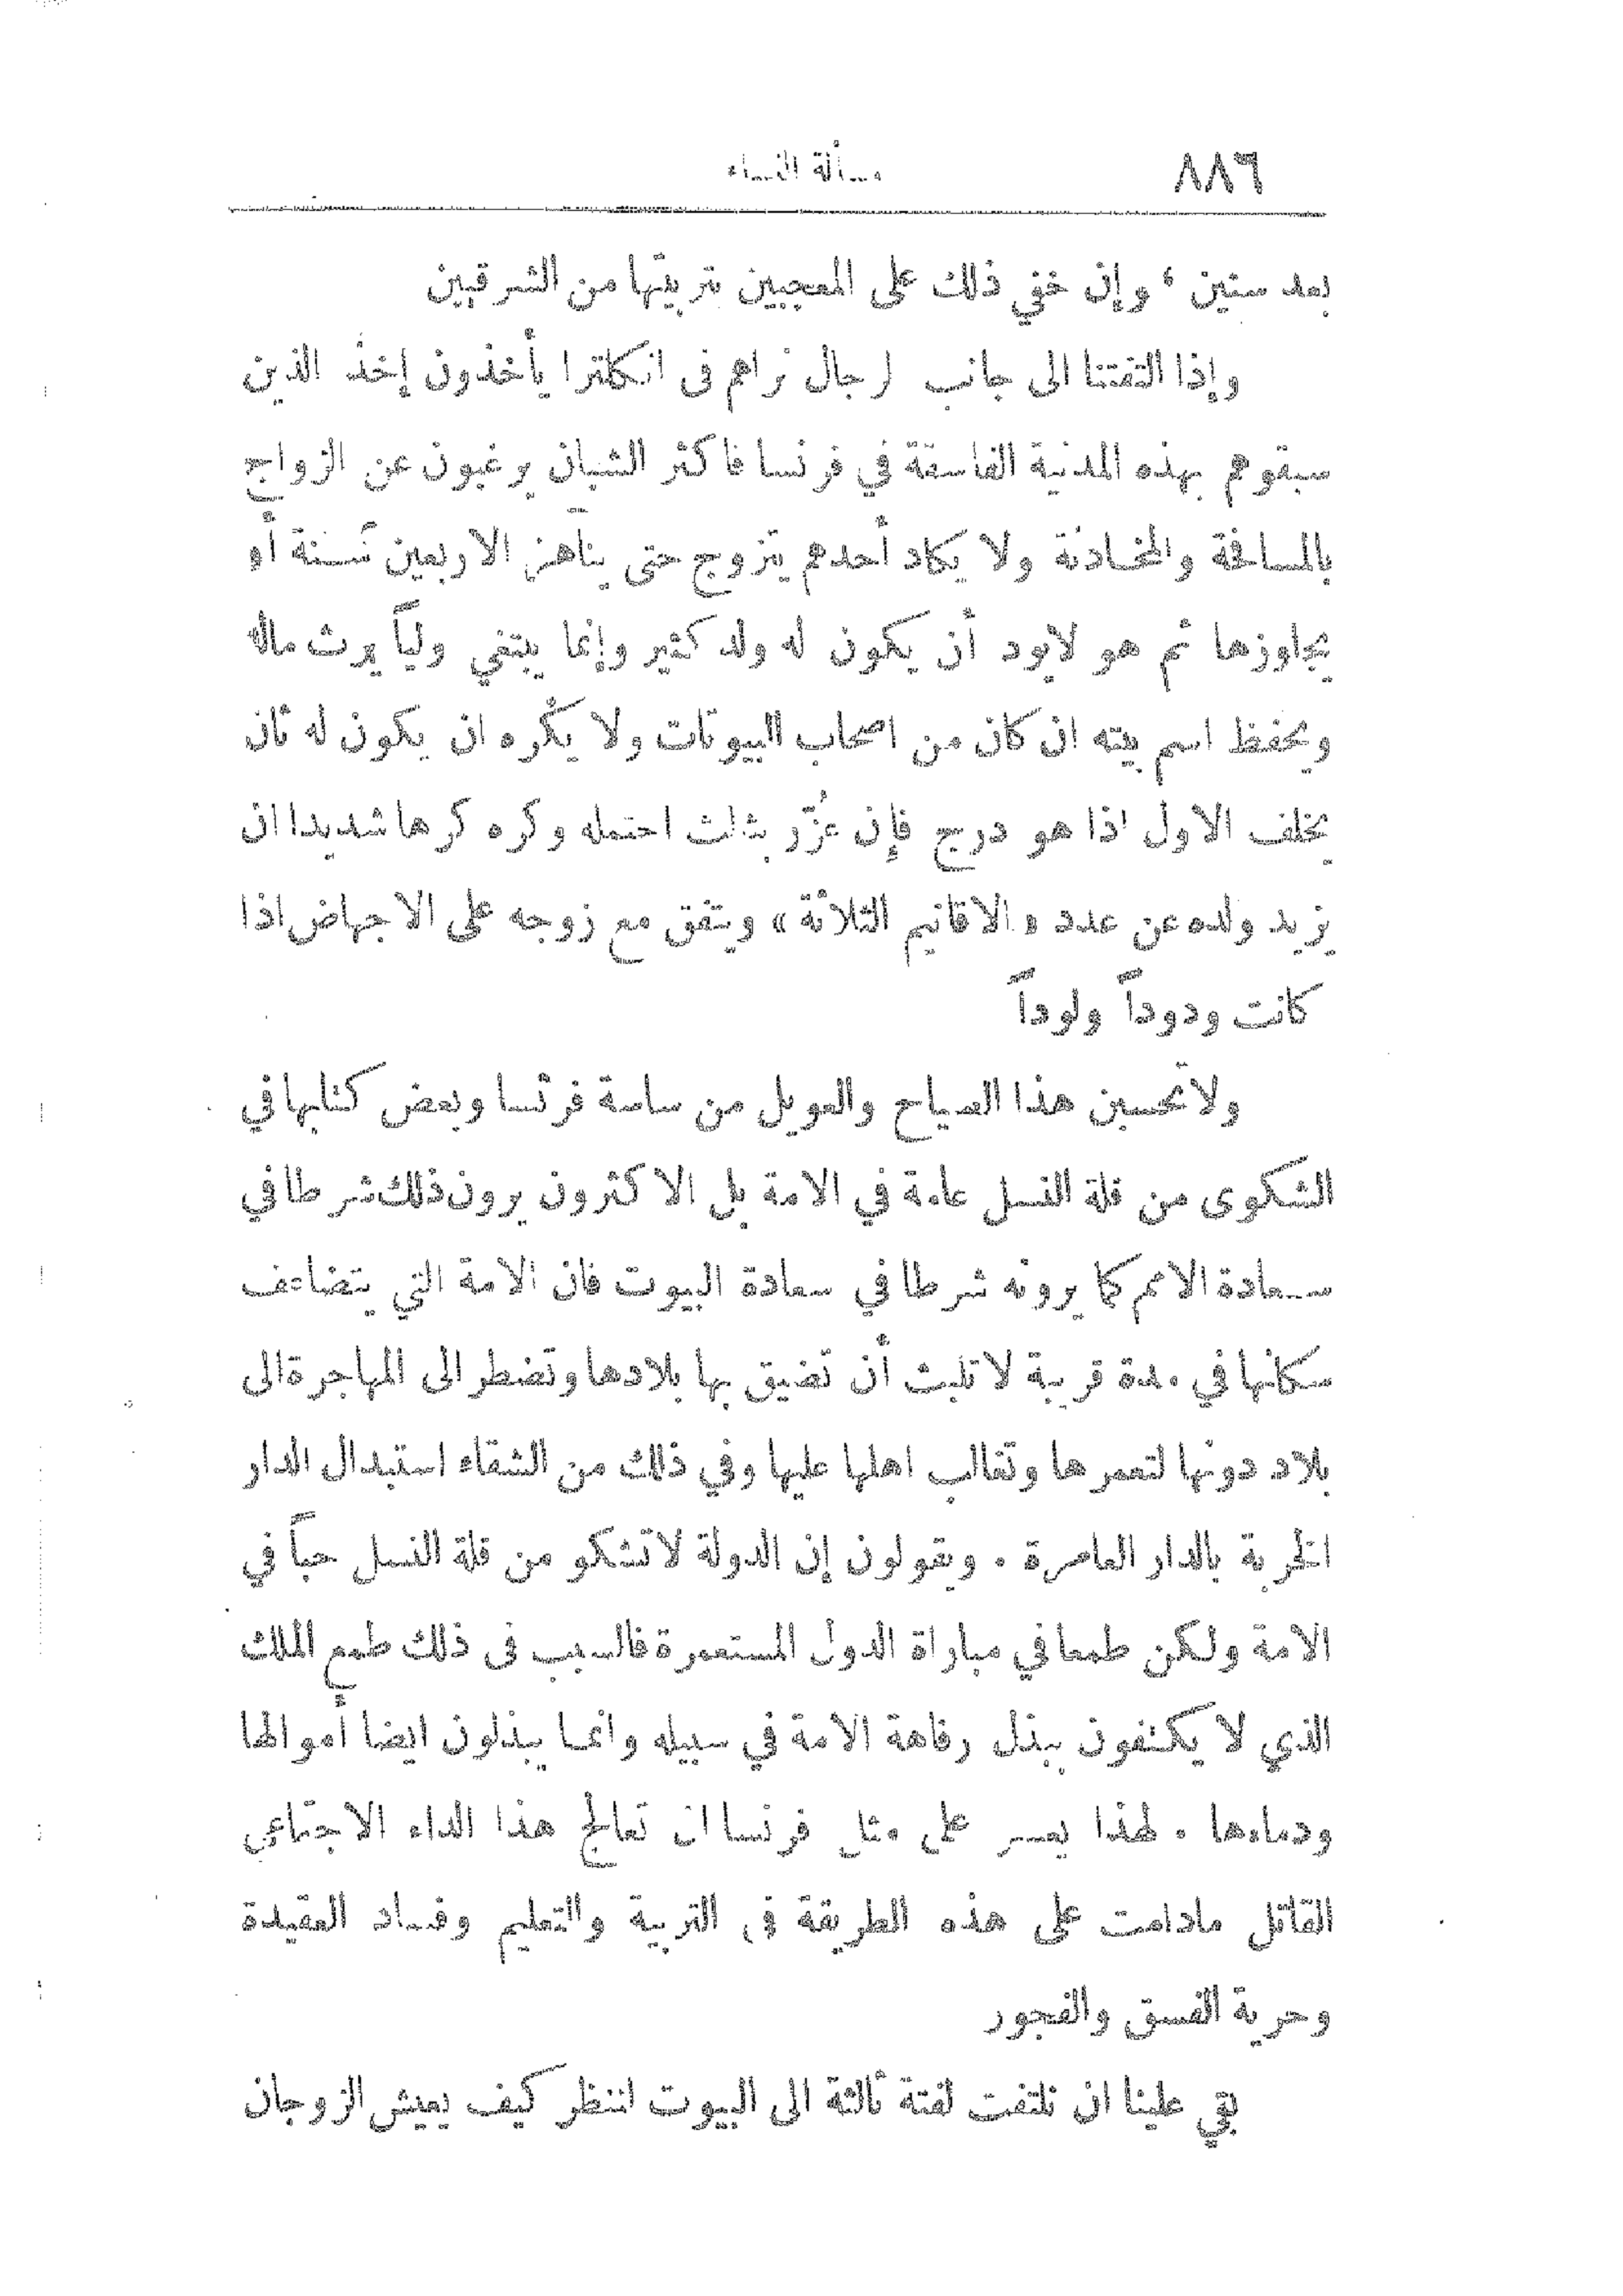 ٨٨٦ مسألة النساء
بعد سنين ، وإن خفي ذلك على المعجبين بتربيتها من الشرقيين
وإذا التفتنا الى جانب الرجال نراهم فى انكلترا يأخذون إخذ الذين
سبقوهم بهذه المدنية الفاسقة في فرنسا فاكثر الشبان يرغبون عن الزواج
بالمسافحة والمخادنة ولا يكاد أحدهم يتزوج حتى يناهز الاربعين سنة أو
يتجاوزها ثم هو لايود أن يكون له ولد كثير وإنما يبتغي ولياً يرث ماله
ويحفظ اسم بيته ان كان من اصحاب البيوتات ولا يكره ان يكون له ثان
يخلف الاول اذا هو درج فإن عُزّز بثالث احتمله وكره كرها شديدا ان
يزيد ولده عن عدد « الاقانيم الثلاثة » ويتفق مع زوجه على الاجهاض اذا
كانت ودوداً ولوداً
ولا تحسبن هذا الصياح والعويل من ساسة فرنسا وبعض كتابها في
الشكوى من قلة النسل عامة في الامة بل الاكثرون يرون ذلك شرطا في
سعادة الامم كما يرونه شرطا في سعادة البيوت فان الامة التي يتضاعف
سكانها في مدة قريبة لا تلبث أن تضيق بها بلادها وتضطر الى المهاجرة الى
بلاد دونها لتعمرها وتغالب اهلها عليها وفي ذلك من الشقاء استبدال الدار
الخربة بالدار العامرة . ويقولون إن الدولة لاتشكو من قلة النسل حباً في
الامة ولكن طمعا في مباراة الدول المستعمرة فالسبب فى ذلك طمع الملك
الذي لا يكتفون ببذل رفاهة الامة في سبيله وانما يبذلون ايضا أموالها
ودماءها . لهذا يعسر على مثل فرنسا ان تعالج هذا الداء الاجتماعي
القاتل مادامت على هذه الطريقة فى التربية والتعليم وفساد العقيدة
وحرية الفسق والفجور
بقي علينا ان نلتفت لفتة ثالثة الى البيوت لننظر كيف يعيش الزوجان